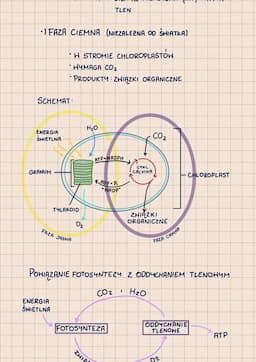 TLEN
•) FAZA CIEMNA (NIEZALEŻNA OD ŚWIATŁA)
• W STROMIE CHLOROPLASTÓW
• WYMAGA CO₂
• PRODUKTY: ZWIĄZKI ORGANICZNE
SCHEMAT:
ENERGIA
ŚWIETLNA
H₂O
CO₂
GRANUM
ATP+NADPH
CYKL
CALVINA
CHLOROPLAST
TYLAKOID
O₂
ZWIĄZKI
ORGANICZNE
FAZA JASNA
FAZA CIEMNA
POWIĄZANIE FOTOSYNTEZY Z ODDYCHANIEM TLENOWYM
CO₂ i H₂O
ENERGIA
ŚWIETLNA
FOTOSYNTEZA
ODDYCHANIE
TLENOWE
ATP
O₂